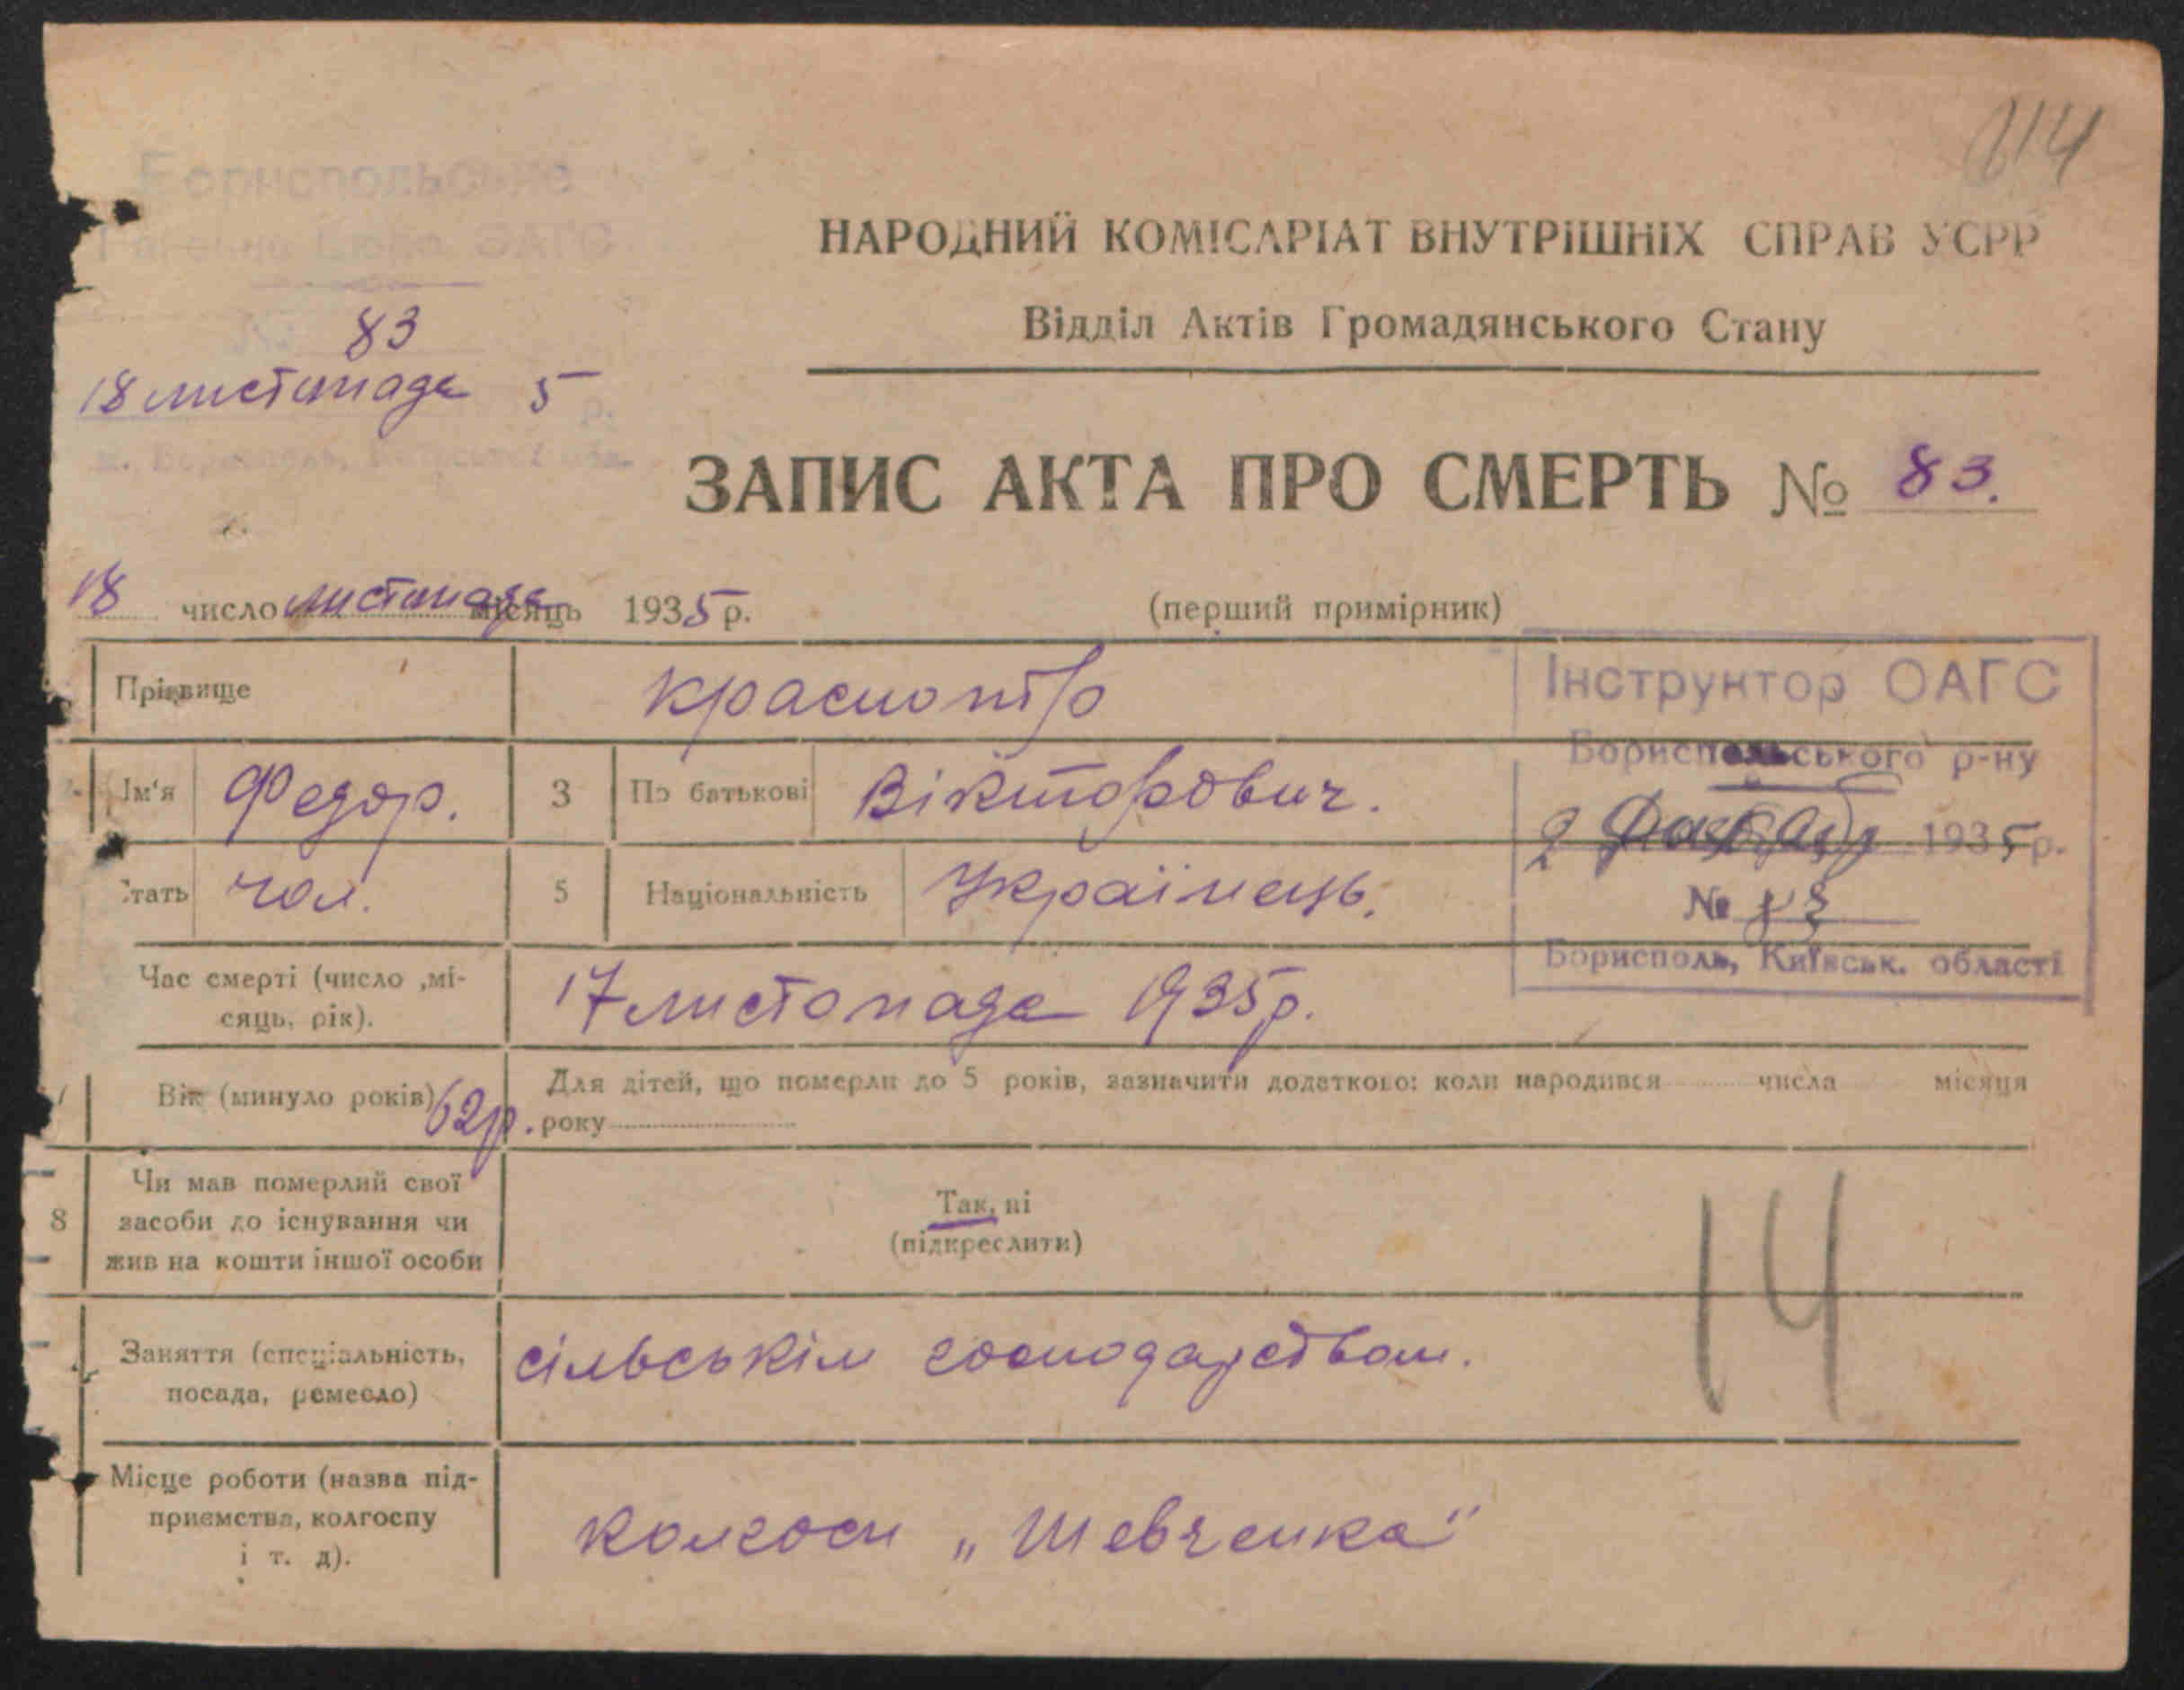 114
Бориспольське
Районне Бюро ЗАГС
№ 83
18 листопада 5 р.
м. Бориспіль, Київської обл.
НАРОДНИЙ КОМІСАРІАТ ВНУТРІШНІХ СПРАВ УСРР
Відділ Актів Громадянського Стану
ЗАПИС АКТА ПРО СМЕРТЬ № 83.
18 число листопада місяць 1935 р.
(перший примірник)
Інструктор ОАГС
Бориспольського р-ну
2 1935 р.
№
Борисполь, Київськ. області
Прізвище
Ім'я Федор. 3 По батькові Вікторович.
Стать чол. 5 Національність Українець.
Час смерті (число ,мі-
сяць, рік).
17 листопада 1935 р.
7 Вік (минуло років) 62 р. Для дітей, що померли до 5 років, зазначити додатково: коли народився числа місяця
року
8 Чи мав померлий свої
засоби до існування чи
жив на кошти іншої особи
Так, ні
(підкреслити)
14
Заняття (спеціальність,
посада, ремесло)
сільськім господарством.
Місце роботи (назва під-
приємства, колгоспу
і т. д).
колгосп „Шевченка"